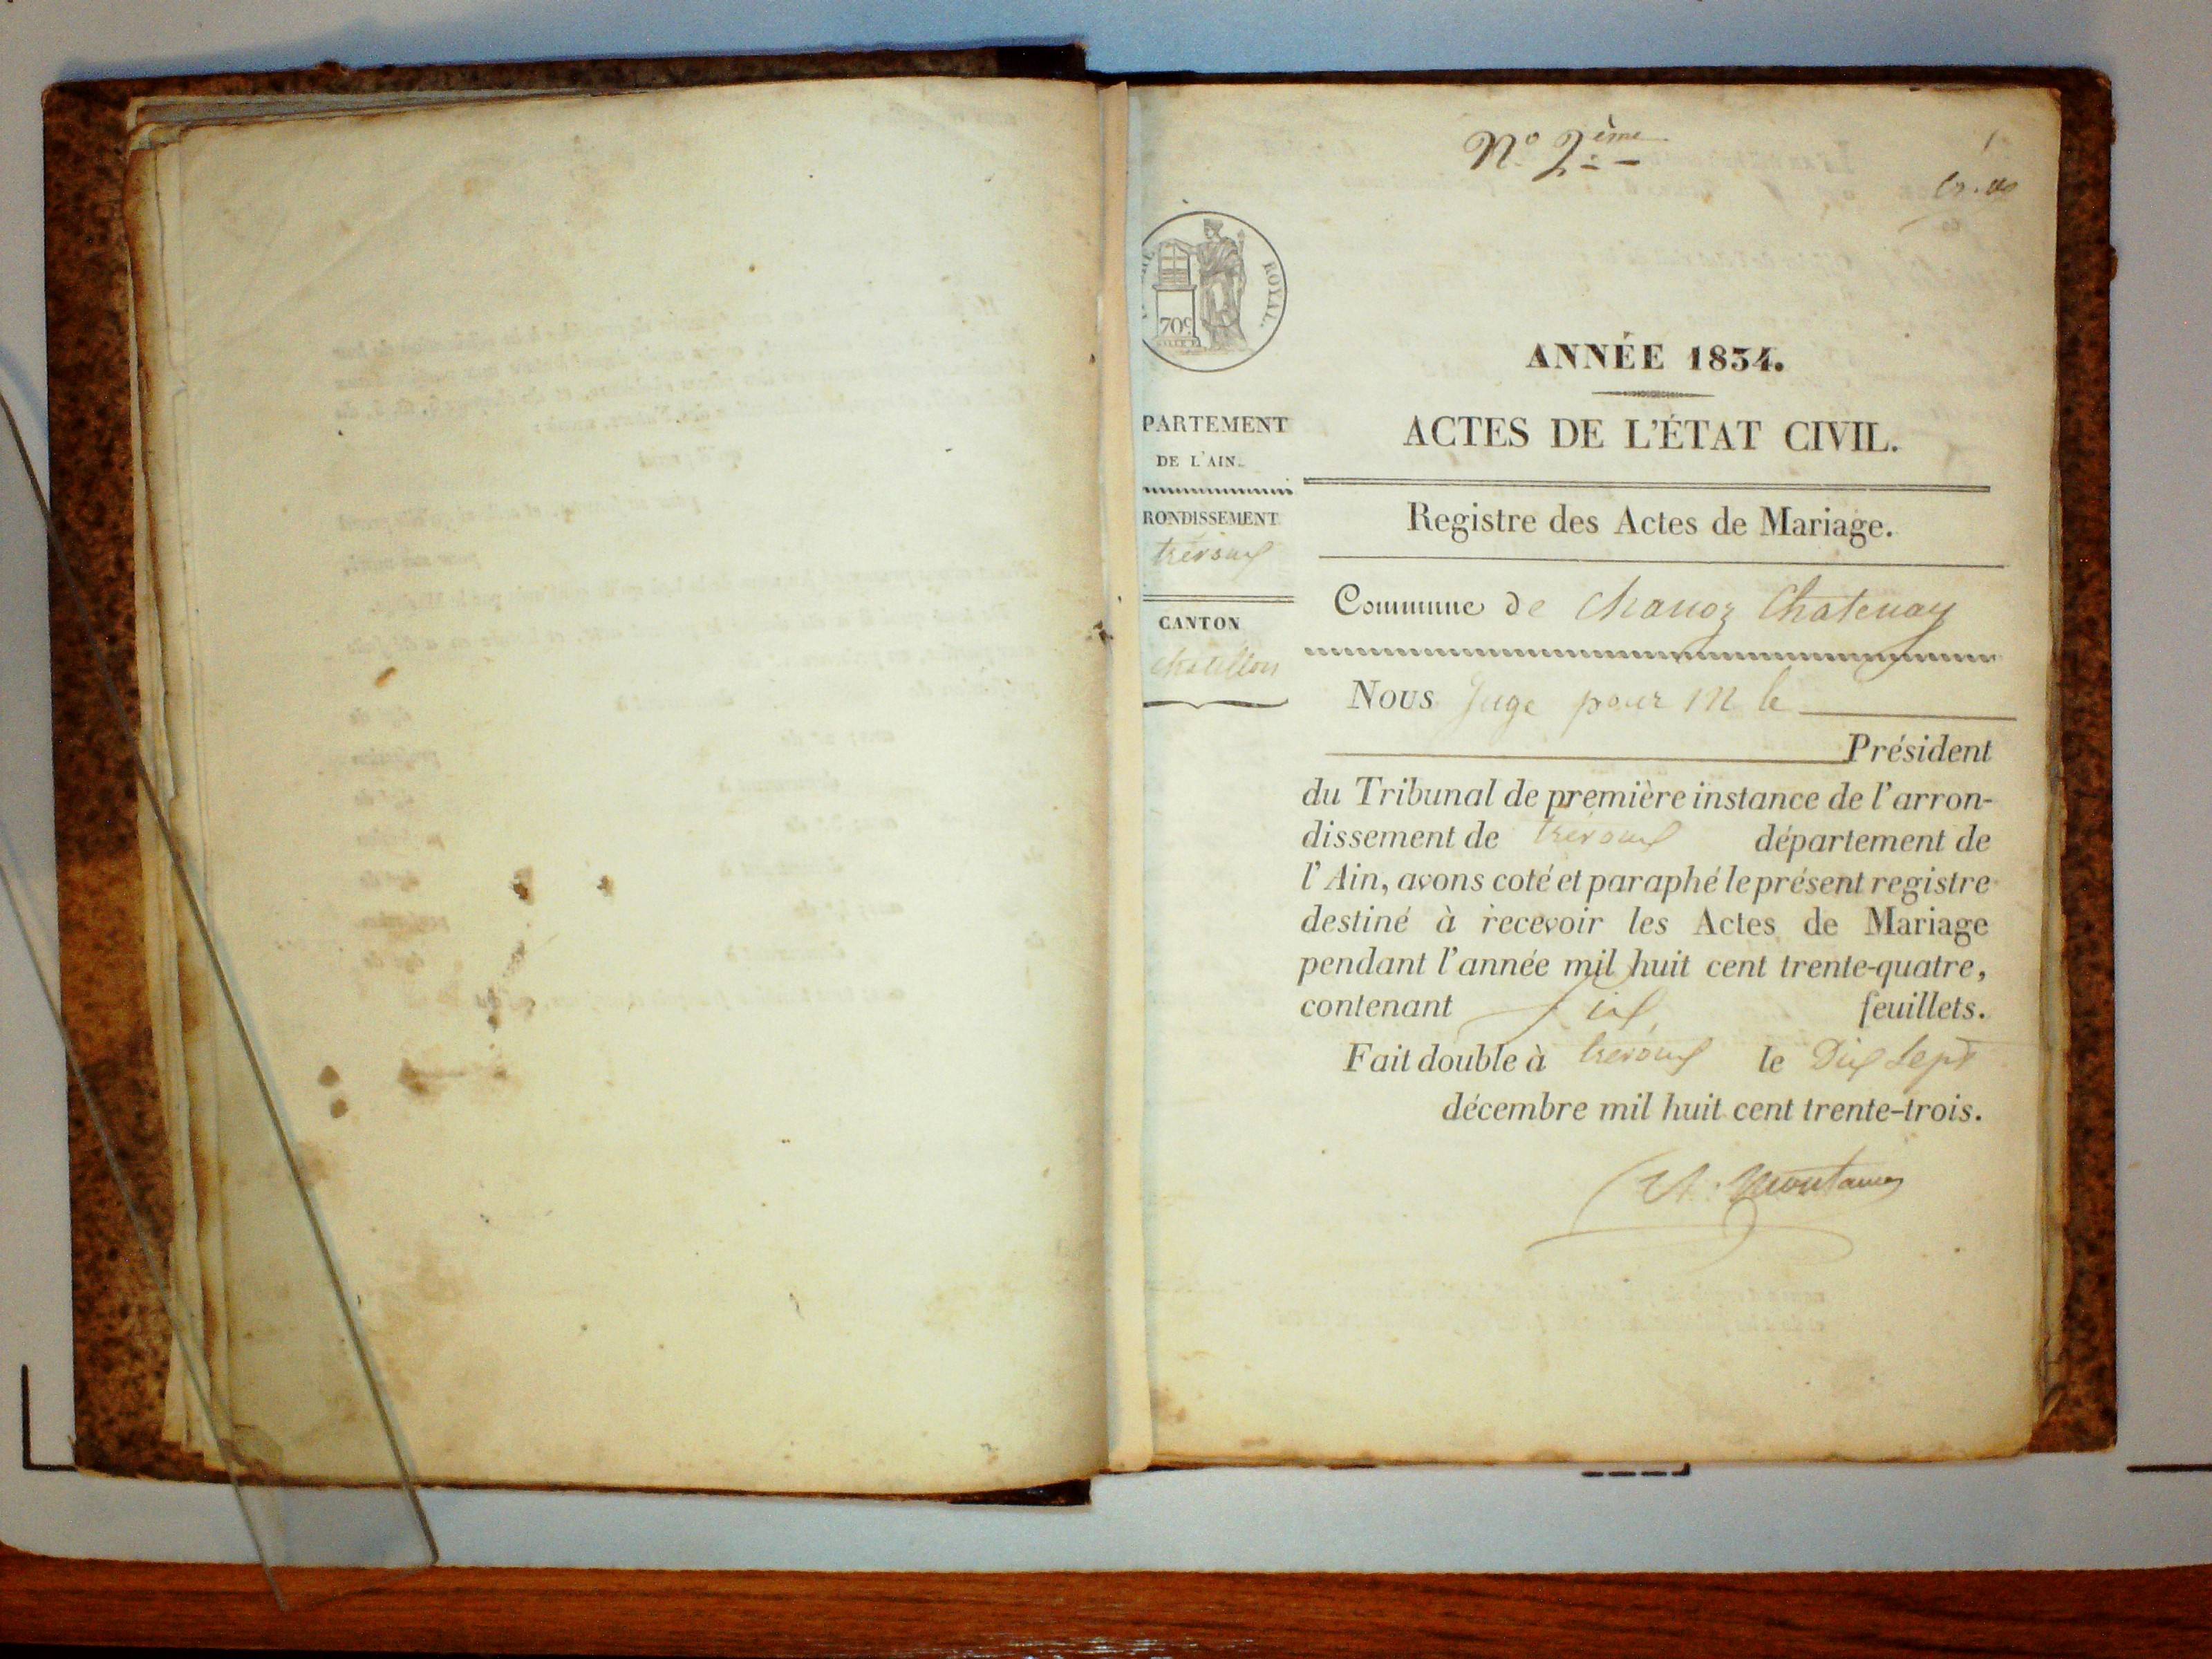 N.º 2ème
1
ROYAL.
70c
ANNÉE 1834.
ACTES DE L'ÉTAT CIVIL.
PARTEMENT
DE L'AIN.
RONDISSEMENT
trévoux
CANTON
chatillon
Registre des Actes de Mariage.
Commune de Chanoz Chatenay
Nous Juge pour M le
Président
du Tribunal de première instance de l'arron-
dissement de trévoux département de
l'Ain, avons coté et paraphé le présent registre
destiné à recevoir les Actes de Mariage
pendant l'année mil huit cent trente-quatre,
contenant six feuillets.
Fait double à trévoux le Dix Sept
décembre mil huit cent trente-trois.